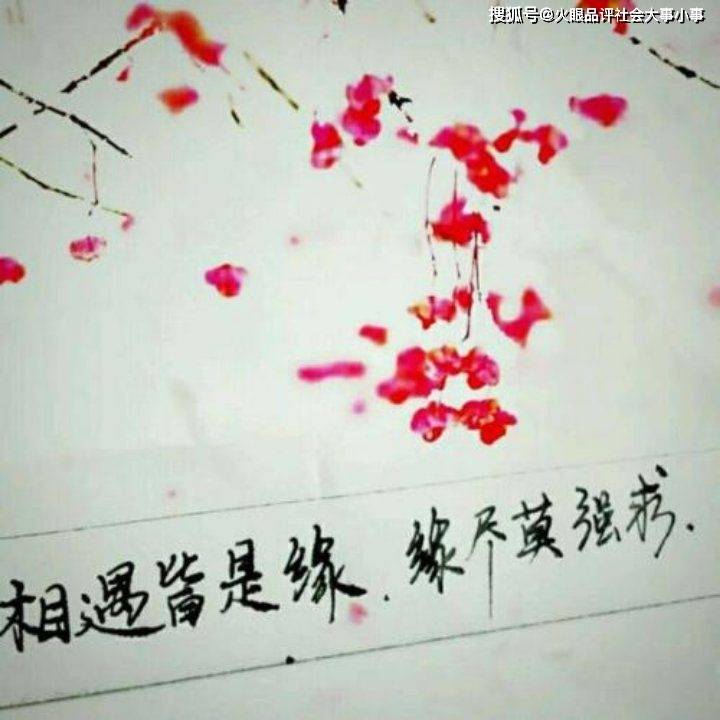 搜狐号@火眼品评社会大事小事
相遇皆是缘.缘尽莫强求.